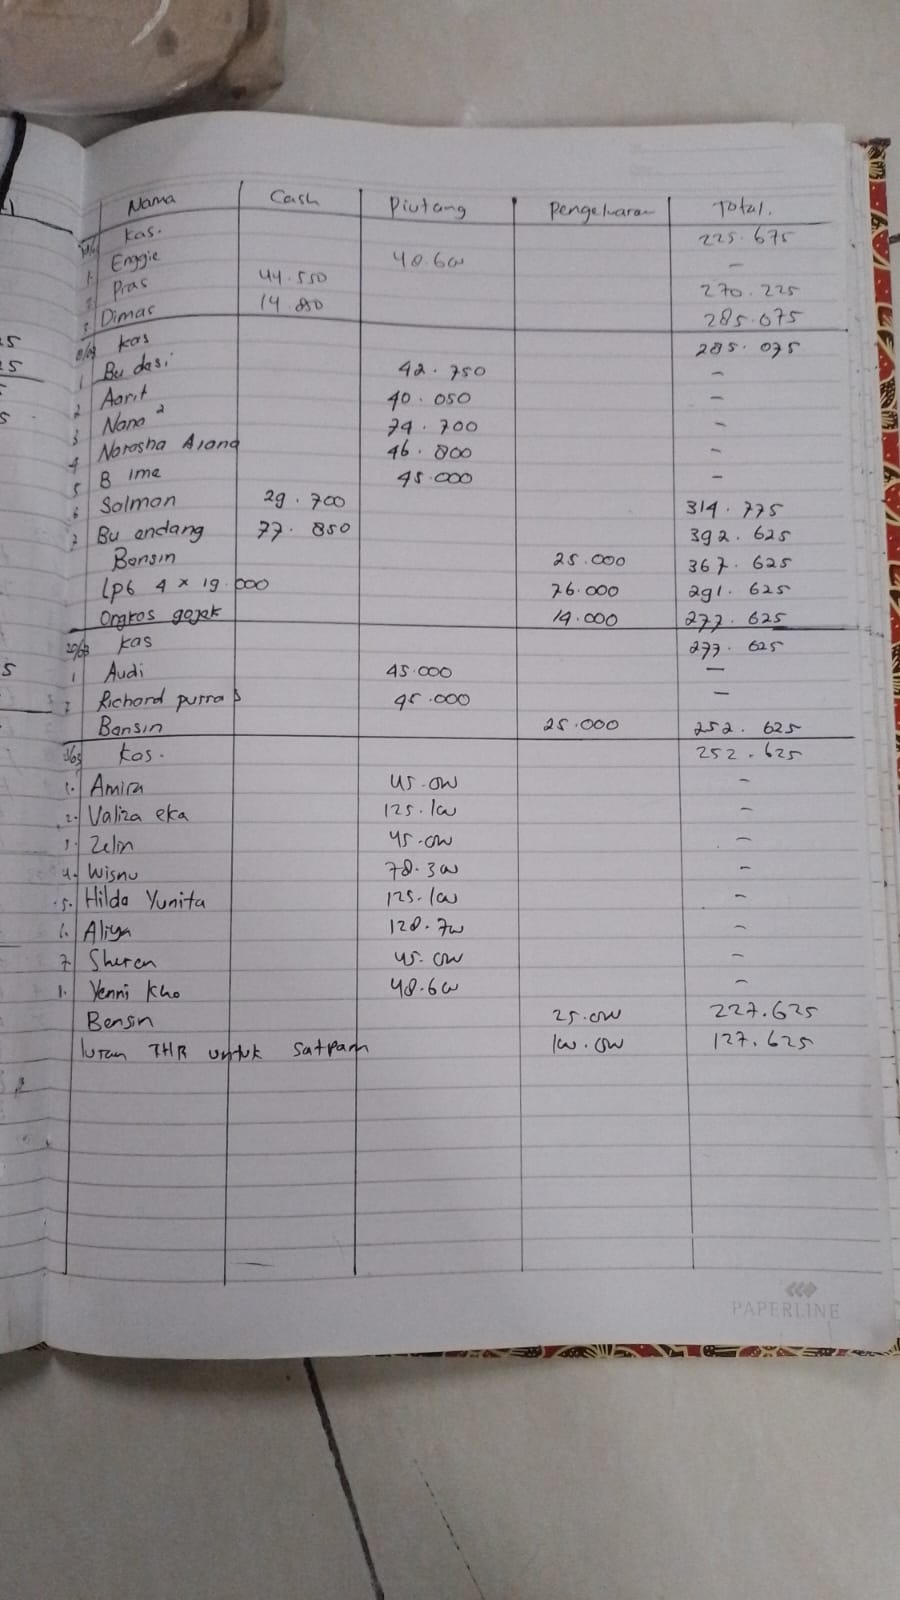 Nama Cash Piutang Pengeluaran Total.
Kas. 225.675
1. Enggie 48.600 -
2 Pras 44.550 270.225
3 Dimas 14.850 285.075
Kas 285.075
1 Bu desi 42.750 -
2 40.050 -
3 Nana 2 74.700 -
4 46.800 -
5 B ima 45.000 -
6 Salman 29.700 314.775
7 Bu endang 77.850 392.625
Bensin 25.000 367.625
4 x 19.000 76.000 291.625
Ongkos gojek 14.000 277.625
Kas 277.625
1 Audi 45.000 -
2 Richard 45.000 -
Bensin 25.000 252.625
Kas. 252.625
1. Amira 45.000 -
2. Valiza eka 125.100 -
3. Zelin 45.000 -
4. Wisnu 78.300 -
5. Hilda Yunita 125.100 -
6. Aliya 128.700 -
7. Sheren 45.000 -
Yenni Kho 48.600 -
Bensin 25.000 227.625
Iuran THR untuk Satpam 100.000 127.625
PAPERLINE